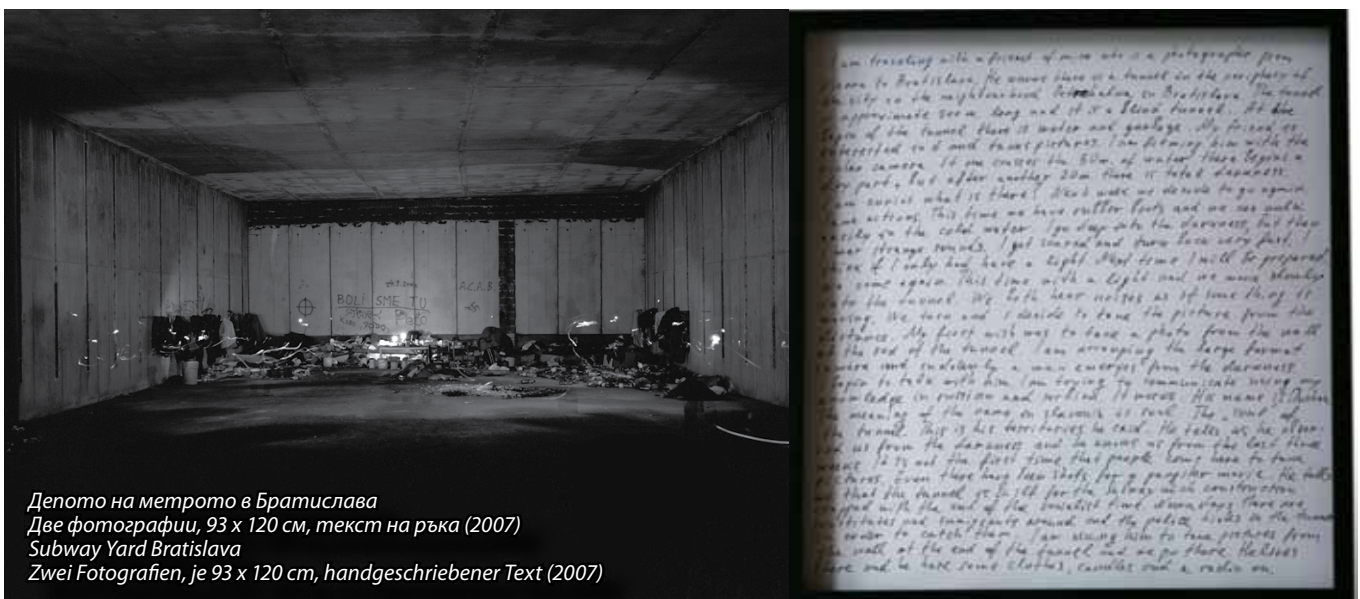 BOLI SME TU
A.C.A.B.
Депото на метрото в Братислава
Две фотографии, 93 x 120 см, текст на ръка (2007)
Subway Yard Bratislava
Zwei Fotografien, je 93 x 120 cm, handgeschriebener Text (2007)
am traveling with a friend of mine who is a photographer from
to Bratislava. He knows there is a tunnel in the periphery of
the city in the neighbourhood in Bratislava. The tunnel
approximate long and it is a blind tunnel. At the
of the tunnel there is water and garbage. My friend is
interested in it and takes pictures. I am filming him with the
camera. If one crosses the 50m. of water there begins a
dry part, but after another 20m there is total darkness
am curios what is there? Next week we decide to go again
same actions. This time we have rubber boots and we can walk
easily in the cold water. I go deep into the darkness, but then
strange sounds. I get scared and turn back very fast. I
think if I only had have a light. Next time I will be prepared
we come again. This time with a light and we move slowly
into the tunnel. We both hear noises as if some thing is
moving. We turn and I decide to take the picture from the
distance. My first wish was to take a photo from the wall
at the end of the tunnel. I am arranging the large format
camera and suddenly a man emerges from the darkness
begin to talk with him. I am trying to communicate using my
knowledge in russian and It works. His name is
The meaning of the name in slavonic is soul. The soul of
the tunnel. This is his territories he said. He tells us he
us from the darkness and he knows us from the last three
weeks. It is not the first time that people come here to take
pictures. Even there have been shots for a gangster movie. He tells
that the tunnel is built for the subway which construction
stopped with the end of the socialist time. There are
prostitutes and around and the police hides in the
order to catch them. I am asking him to take pictures from
the wall at the end of the tunnel and we go there. He lives
there and he have some clothes, candles and a radio on.